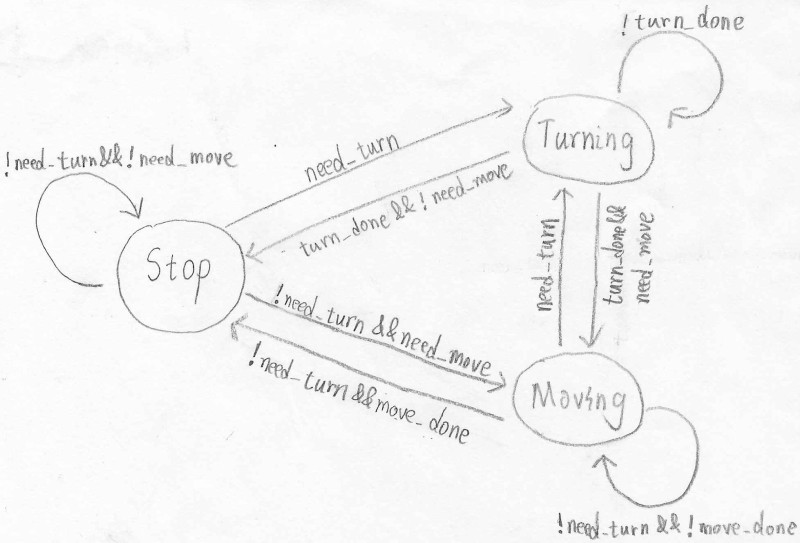 !turn_done
Turning
need_turn
!need_turn&&!need_move
turn_done && !need_move
Stop
need_turn
turn_done&&
need_move
!need_turn &&need_move
!need_turn &&move_done
Moving
!need_turn && !move_done